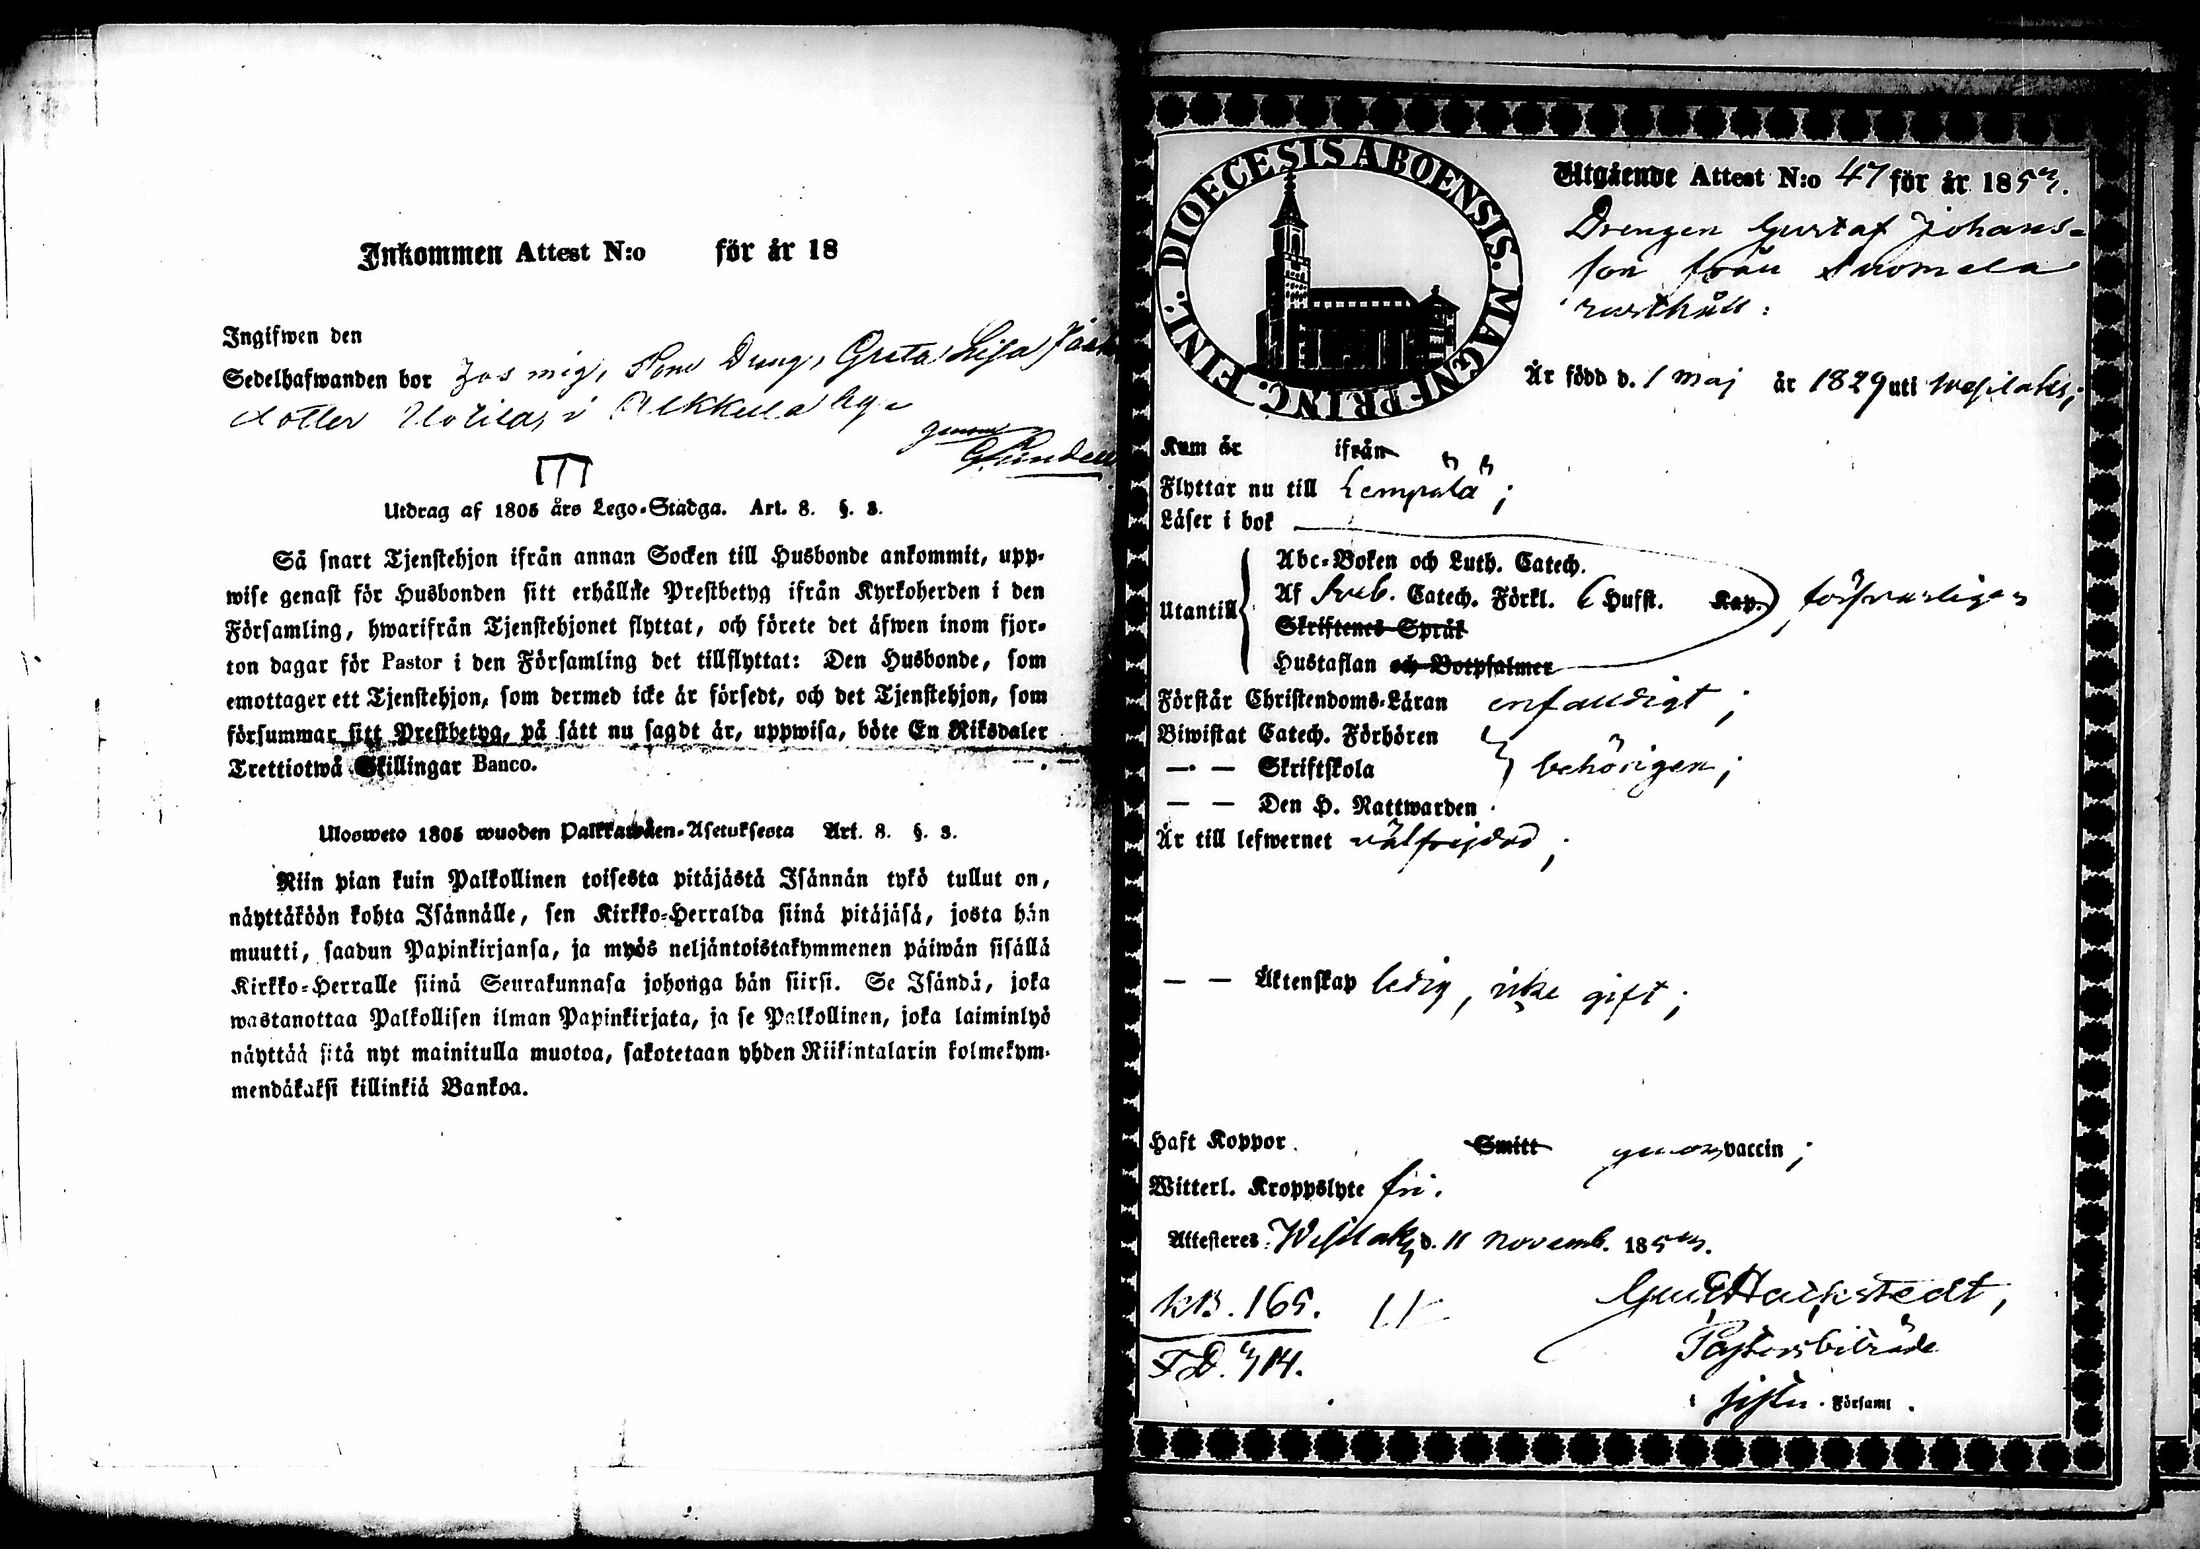 Inkommen Attest N:o för år 18
Ingifwen den
Sedelhafwanden bor hos mig, som Dreng, Greta Lisa
dotter i Alkkula by
genom
Utdrag af 1805 års Lego-Stadga. Art. 8. §. 8.
Så snart Tjenstehjon ifrån annan Socken till Husbonde ankommit, upp-
wise genast för Husbonden sitt erhållne Prestbetyg ifrån Kyrkoherden i den
Församling, hwarifrån Tjenstehjonet flyttat, och förete det äfwen inom fjor-
ton dagar för Pastor i den Församling det tillflyttat: Den Husbonde, som
emottager ett Tjenstehjon, som dermed icke är försedt, och det Tjenstehjon, som
försummar sitt Prestbetyg, på sätt nu sagdt är, uppwisa, böte En Riksdaler
Trettiotwå Skillingar Banco.
Ulosweto 1805 wuoden Palkkawäen-Asetuksesta Art. 8. §. 8.
Niin pian kuin Palkollinen toisesta pitäjästä Isännän tykö tullut on,
näyttäköön kohta Isännälle, sen Kirkko-Herralda siinä pitäjäsä, josta hän
muutti, saadun Papinkirjansa, ja myös neljäntoistakymmenen päiwän sisällä
Kirkko-Herralle siinä Seurakunnasa johonga hän siirsi. Se Isändä, joka
wastanottaa Palkollisen ilman Papinkirjata, ja se Palkollinen, joka laiminlyö
näyttää sitä nyt mainitulla muotoa, sakotetaan yhden Riikintalarin kolmekym-
mendäkaksi killinkiä Bankoa.
DIOECESIS ABOENSIS. MAGNI PRINC. FINL.
Utgående Attest N:o 47 för år 185
Drengen Gustaf Johans-
son från Suomela
rusthåll:
Är född d. 1 Maj år 1829 uti Wesilaks;
Kom är ifrån
Flyttar nu till Lempälä;
Läser i bok
Abc-Boken och Luth. Catech.
Utantill Af Sveb. Catech. Förkl. 6 Hufst. Kap. försvarligen
Skriftenes Språk
Hustaflan och Botpsalmer
Förstår Christendoms-Läran enfaldigt;
Biwistat Catech. Förhören
— — Skriftskola behörigen;
— — Den H. Nattwarden
Är till lefwernet välfrejdad;
— — Äktenskap ledig, icke gift;
Haft Koppor Smitt genom vaccin;
Witterl. Kroppslyte fri.
Attesteras Wesilaks d. 11 Novemb. 185
KB. 165.
Gust Hackstedt,
Pastorsbiträde
T D. 414.
i sistn. Församl.